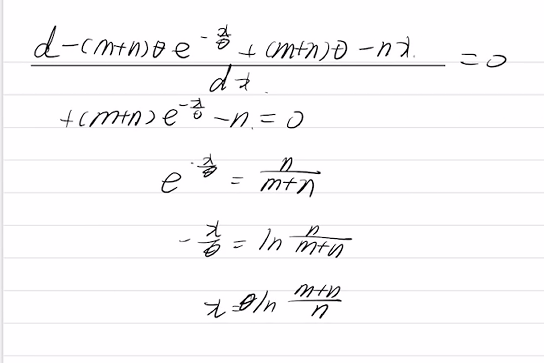 d -(m+n)θ e^{-x/θ} + (m+n)θ - nx / dx = 0
+(m+n) e^{-x/θ} - n = 0
e^{-x/θ} = n/(m+n)
-x/θ = ln n/(m+n)
x = θ ln (m+n)/n